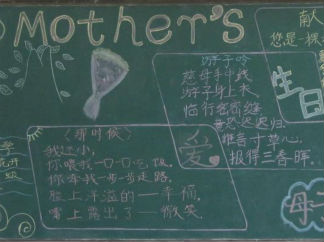 Mother's
献
您是一棵
游子吟
慈母手中线
游子身上衣
临行密密缝
意恐迟迟归
谁言寸草心
报得三春晖
生
日
爱
《那时候》
我还小,
你喂我一口一口吃饭。
你牵我一步一步走路。
脸上洋溢的——幸福。
嘴上露出了——微笑。
母